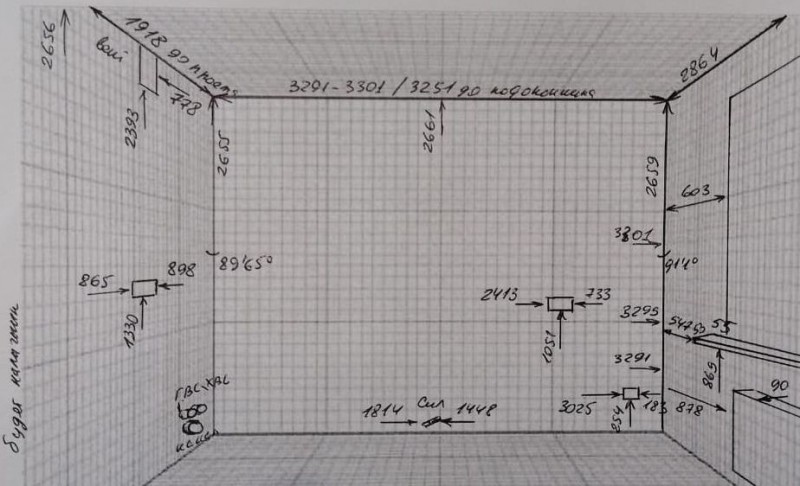 2656
1918 до проема
вент
778
2393
3291-3301 / 3251 до подоконника
2864
2655
2661
2659
603
3301
89'65°
91'4°
865
898
1330
2413
733
1051
3295
547
53
55
3291
869
90
ГВС ХВС
канал
1814
Сил
1448
3025
183
254
878
будет